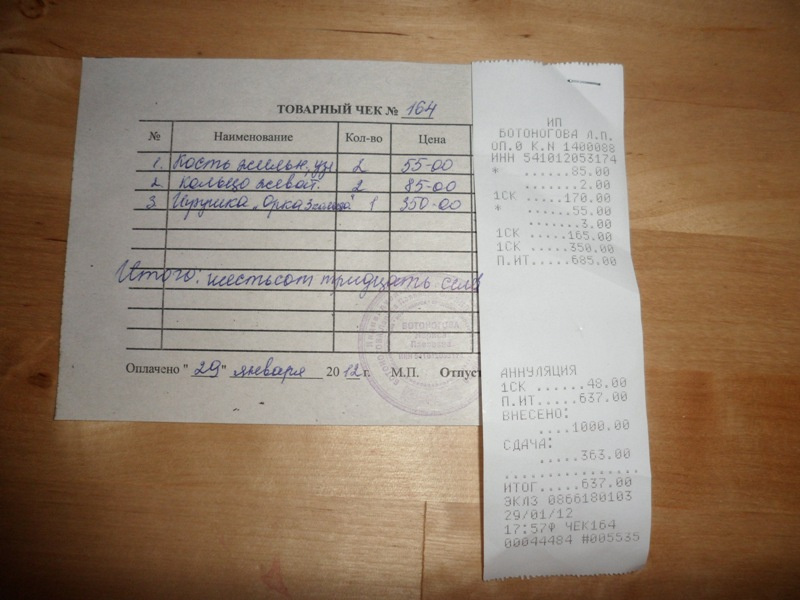 ТОВАРНЫЙ ЧЕК № 164
№ Наименование Кол-во Цена
1. Кость жильн, уз 2 55-00
2. Кольцо жеват. 2 85-00
3. Игрушка „Орка 1 350-00
Итого: шестьсот тридцать сем
БОТОНОГОВА
Оплачено "29" января 2012 г. М.П. Отпуст
ИП
БОТОНОГОВА Л.П.
ОП.0 К.N 1400088
ИНН 541012053174
* ......85.00
.......2.00
1СК .....170.00
* ......55.00
.......3.00
1СК .....165.00
1СК .....350.00
П.ИТ.....685.00
АННУЛЯЦИЯ
1СК ......48.00
П.ИТ.....637.00
ВНЕСЕНО:
....1000.00
СДАЧА:
.....363.00
.................
ИТОГ.....637.00
ЭКЛЗ 0866180103
29/01/12
17:57Ф ЧЕК164
00044484 #005535